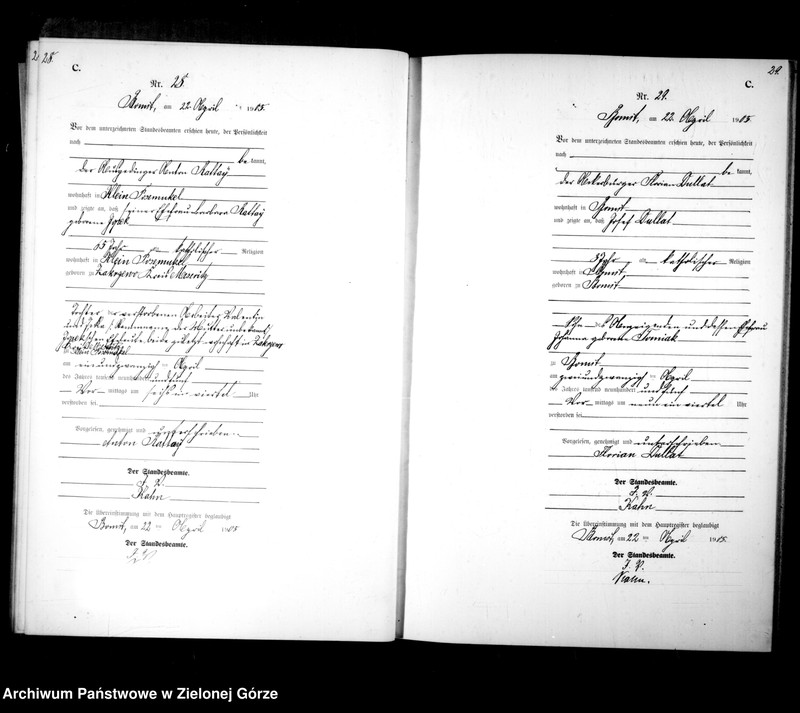 28.
C.
Nr. 28.
Bomst, am 22. April 1905.
Vor dem unterzeichneten Standesbeamten erschien heute, der Persönlichkeit
nach
be kannt,
der Anton Rattay
wohnhaft in Klein Posemukel
und zeigte an, daß seiner Ehefrau Barbara Rattay
geborene
65 Jahr katholischer Religion
wohnhaft in Klein Posemukel
geboren zu Kreis Meseritz
Tochter des verstorbenen Arbeiters Valentin
und
zu Klein Posemukel
am einundzwanzigsten April
des Jahres tausend neunhundert und fünf
Vor mittags um sechs ein viertel Uhr
verstorben sei.
Vorgelesen, genehmigt und unterschrieben
Anton Rattay
Der Standesbeamte.
J. V.
Kahn
Die Übereinstimmung mit dem Hauptregister beglaubigt
Bomst, am 22 ten April 1905
Der Standesbeamte.
J. V.
29.
C.
Nr. 29.
Bomst, am 22. April 1905.
Vor dem unterzeichneten Standesbeamten erschien heute, der Persönlichkeit
nach
be kannt,
der Ackerbürger Florian Dullat
wohnhaft in Bomst
und zeigte an, daß Josef Dullat
Jahr alt katholischer Religion
wohnhaft in Bomst,
geboren zu Bomst
Sohn des Anzeigenden und dessen Ehefrau
Johanna geborene Tomiak
zu Bomst
am zweiundzwanzigsten April
des Jahres tausend neunhundert und fünf
Vor mittags um neun ein viertel Uhr
verstorben sei.
Vorgelesen, genehmigt und unterschrieben
Florian Dullat
Der Standesbeamte.
J. V.
Kahn
Die Übereinstimmung mit dem Hauptregister beglaubigt
Bomst, am 22 ten April 1905.
Der Standesbeamte.
J. V.
Kahn.
Archiwum Państwowe w Zielonej Górze